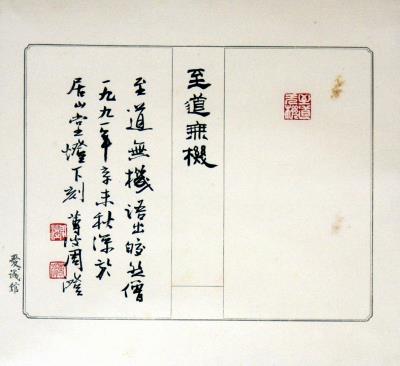 至道無機
至道無機
至道無機語出皎然僧
一九九一年辛未秋深於
居山堂燈下刻 周澄